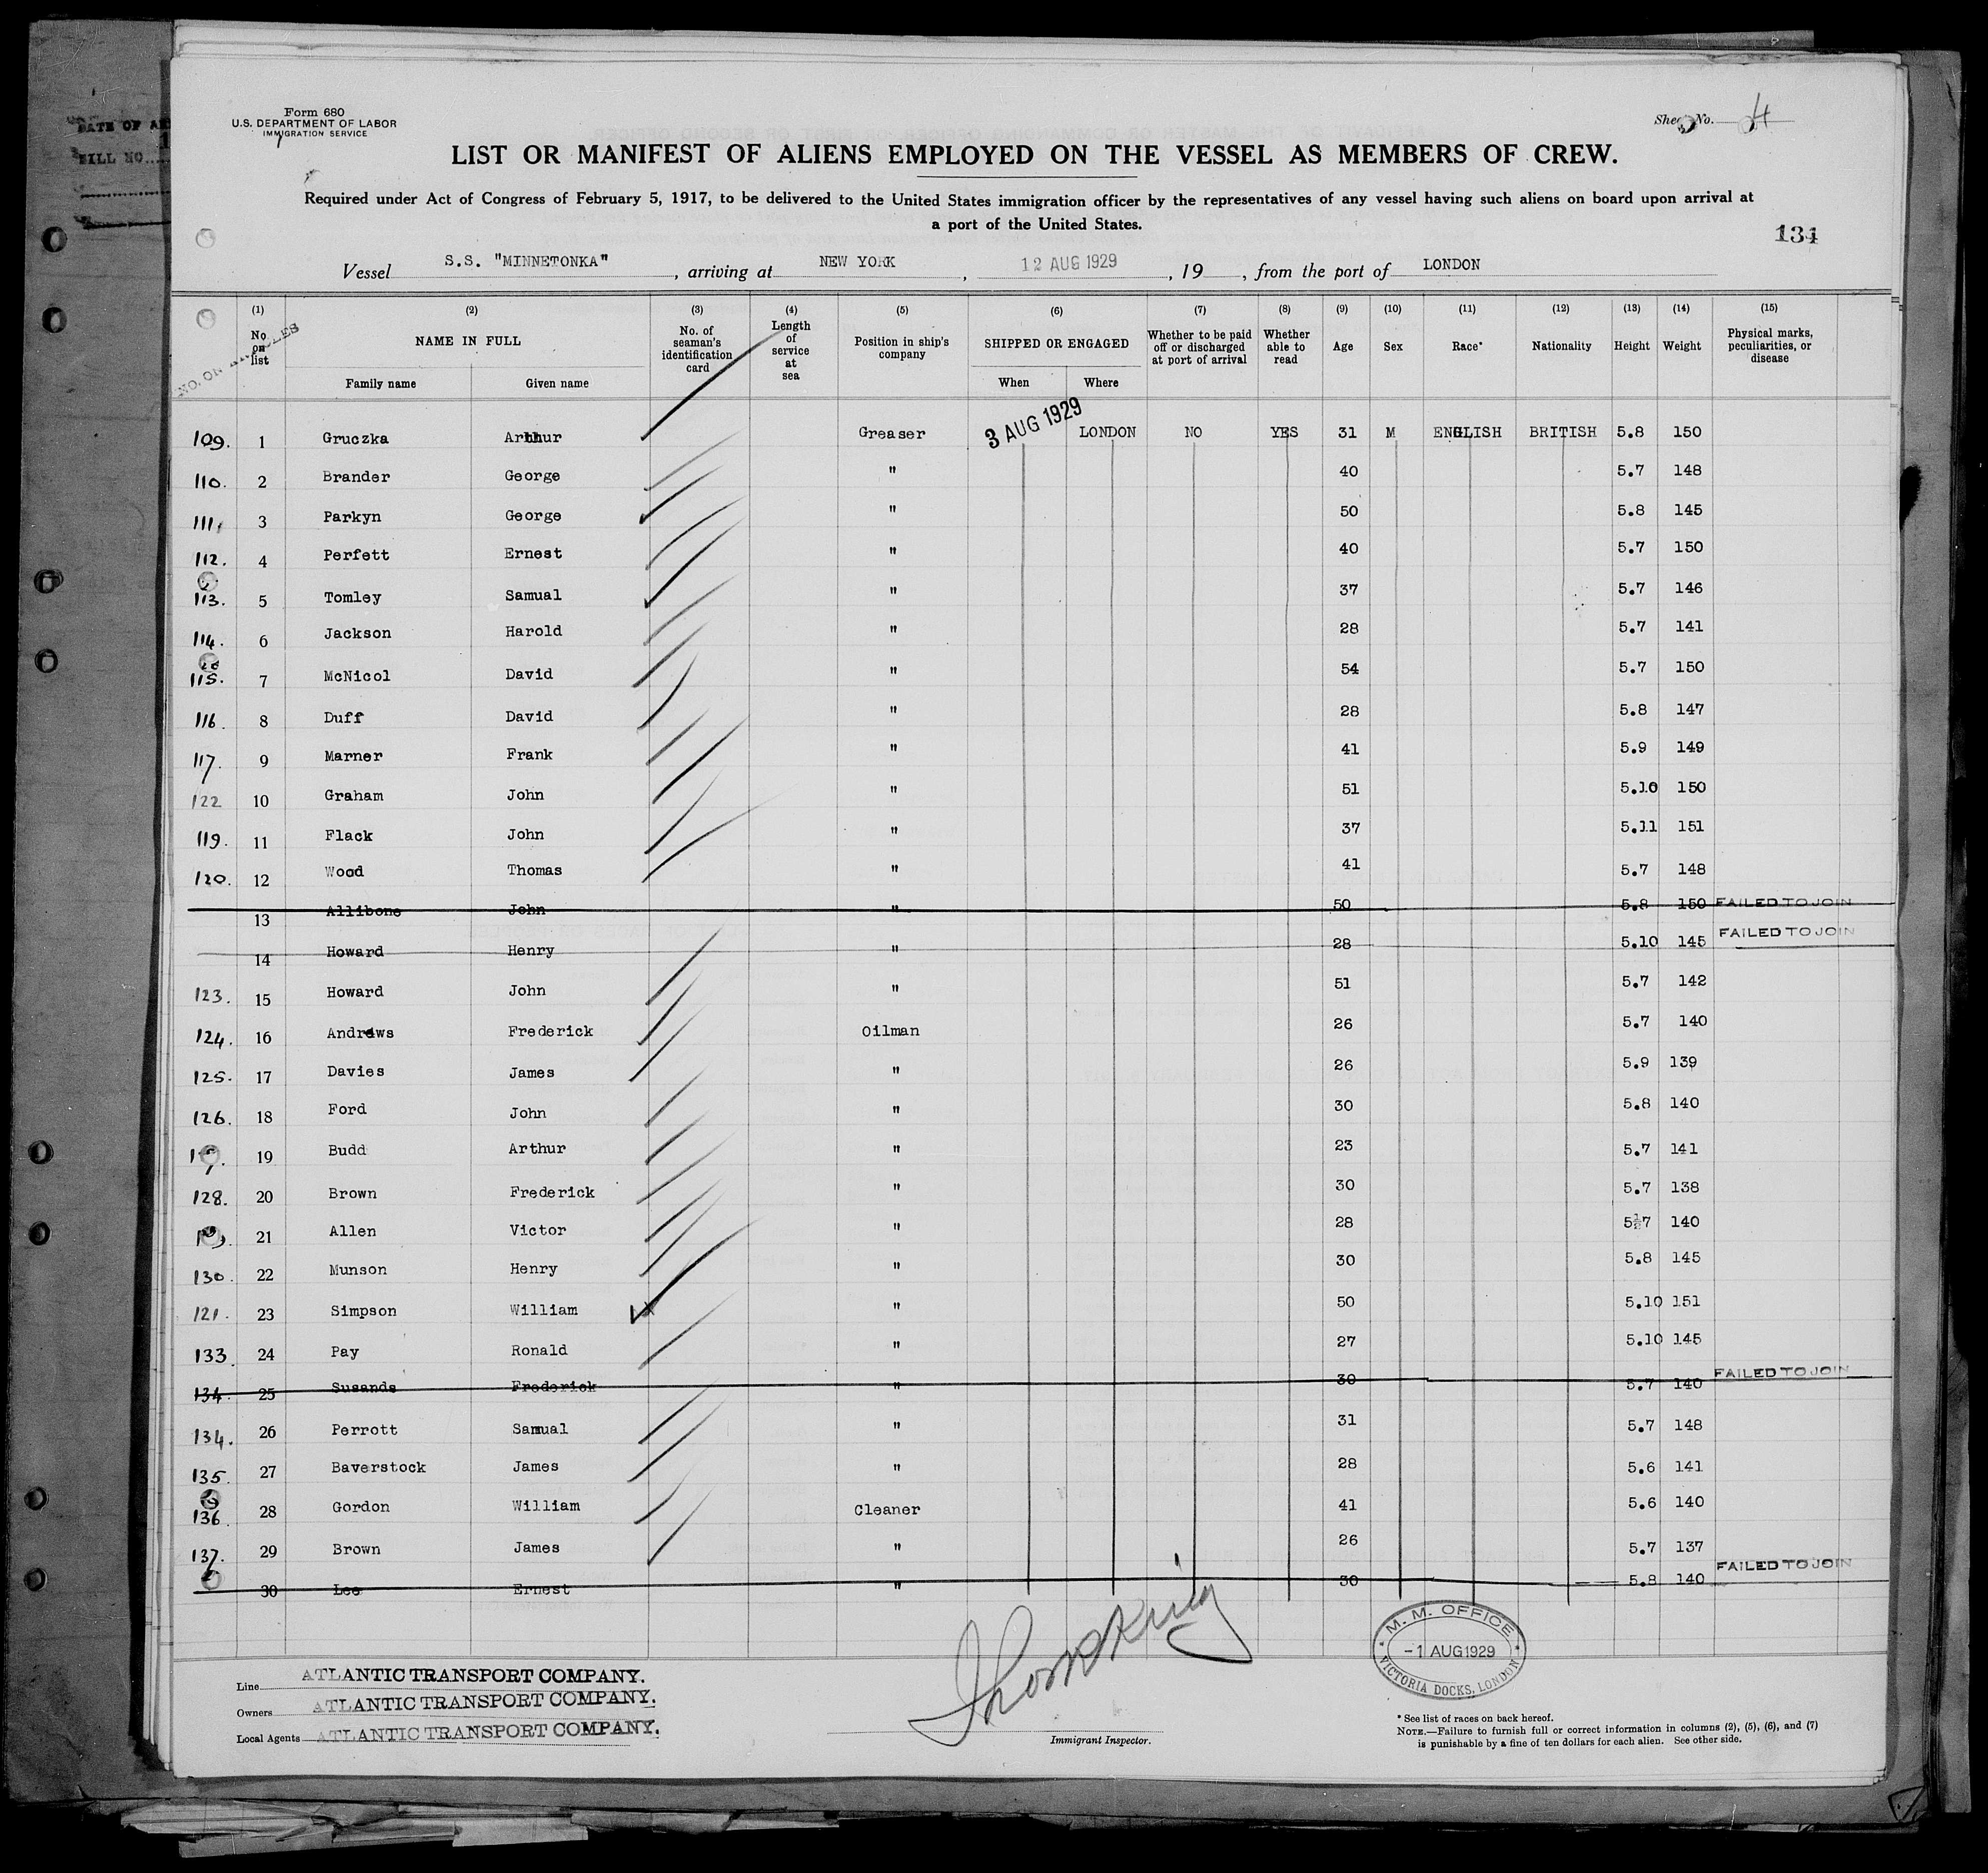 DATE OF AR
BILL NO
Form 680
U.S. DEPARTMENT OF LABOR
IMMIGRATION SERVICE
Sheet No. 4
LIST OR MANIFEST OF ALIENS EMPLOYED ON THE VESSEL AS MEMBERS OF CREW.
Required under Act of Congress of February 5, 1917, to be delivered to the United States immigration officer by the representatives of any vessel having such aliens on board upon arrival at
a port of the United States.
134
Vessel S.S. "MINNETONKA", arriving at NEW YORK, 12 AUG 1929, 19, from the port of LONDON
NO. ON ARTICLES
(1) No. on list
(2) NAME IN FULL Family name Given name
(3) No. of seaman's identification card
(4) Length of service at sea
(5) Position in ship's company
(6) SHIPPED OR ENGAGED When Where
(7) Whether to be paid off or discharged at port of arrival
(8) Whether able to read
(9) Age
(10) Sex
(11) Race*
(12) Nationality
(13) Height
(14) Weight
(15) Physical marks, peculiarities, or disease
109. 1 Gruczka Arthur Greaser 3 AUG 1929 LONDON NO YES 31 M ENGLISH BRITISH 5.8 150
110. 2 Brander George " 40 5.7 148
111. 3 Parkyn George " 50 5.8 145
112. 4 Perfett Ernest " 40 5.7 150
113. 5 Tomley Samual " 37 5.7 146
114. 6 Jackson Harold " 28 5.7 141
115. 7 McNicol David " 54 5.7 150
116. 8 Duff David " 28 5.8 147
117. 9 Marner Frank " 41 5.9 149
122 10 Graham John " 51 5.10 150
119. 11 Flack John " 37 5.11 151
120. 12 Wood Thomas " 41 5.7 148
13 Allibone John " 50 5.8 150 FAILED TO JOIN
14 Howard Henry " 28 5.10 145 FAILED TO JOIN
123. 15 Howard John " 51 5.7 142
124. 16 Andrews Frederick Oilman 26 5.7 140
125. 17 Davies James " 26 5.9 139
126. 18 Ford John " 30 5.8 140
19 Budd Arthur " 23 5.7 141
128. 20 Brown Frederick " 30 5.7 138
21 Allen Victor " 28 5½7 140
130. 22 Munson Henry " 30 5.8 145
121. 23 Simpson William " 50 5.10 151
133. 24 Pay Ronald " 27 5.10 145
134. 25 Susands Frederick " 30 5.7 140 FAILED TO JOIN
134. 26 Perrott Samual " 31 5.7 148
135. 27 Baverstock James " 28 5.6 141
136. 28 Gordon William Cleaner 41 5.6 140
137. 29 Brown James " 26 5.7 137
30 Lee Ernest " 30 5.8 140 FAILED TO JOIN
M. M. OFFICE
-1 AUG 1929
VICTORIA DOCKS, LONDON
Line ATLANTIC TRANSPORT COMPANY.
Owners ATLANTIC TRANSPORT COMPANY.
Local Agents ATLANTIC TRANSPORT COMPANY.
Immigrant Inspector.
* See list of races on back hereof.
NOTE.—Failure to furnish full or correct information in columns (2), (5), (6), and (7)
is punishable by a fine of ten dollars for each alien. See other side.